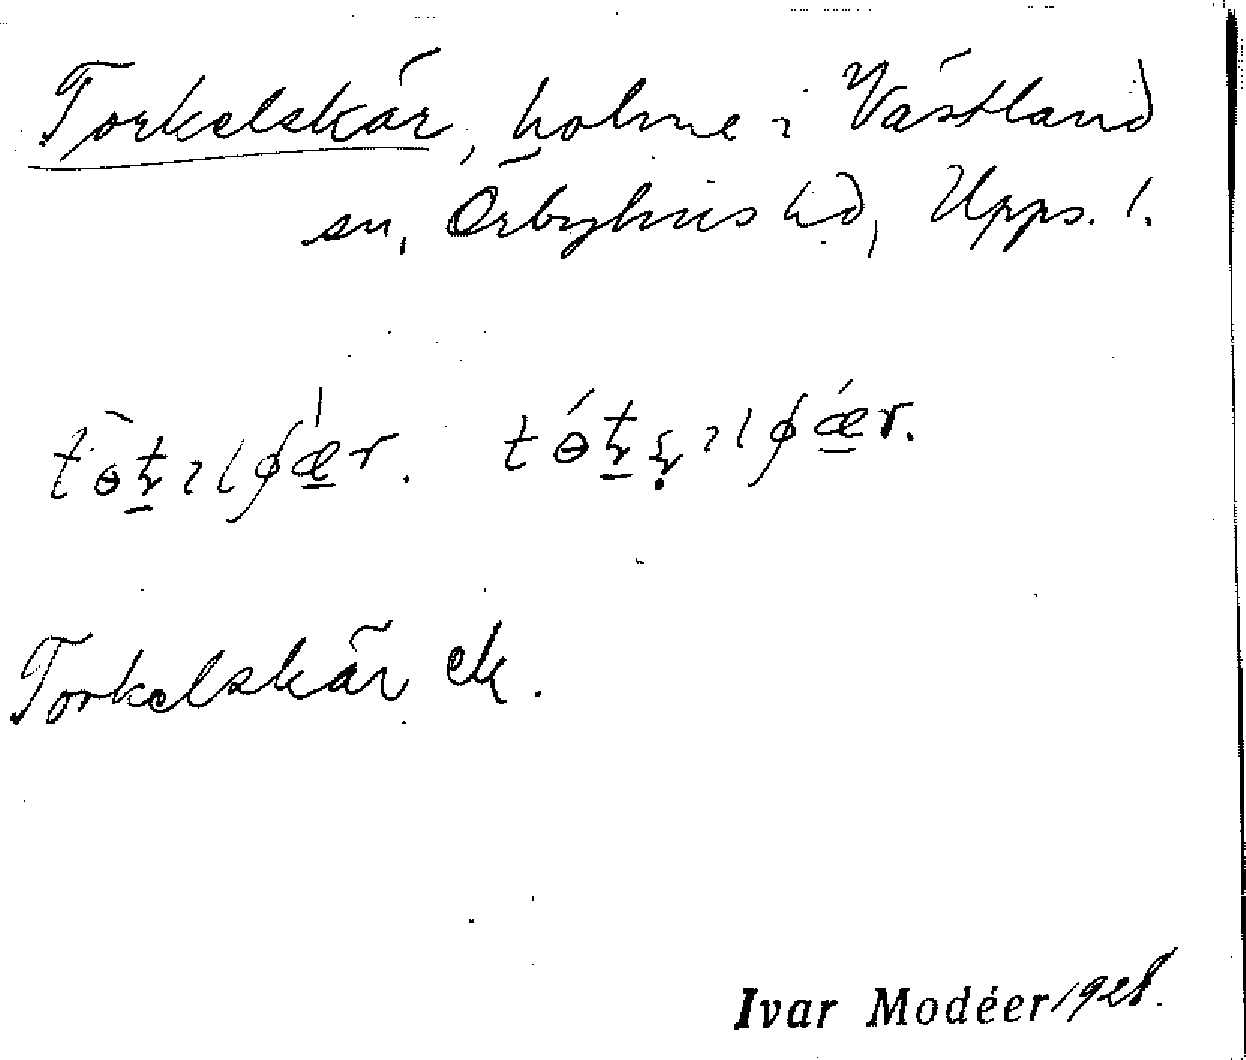 Torkelskär, holme i Västland
sn, Örbyhus hd, Upps. l.
Torkelskär ek.
Ivar Modéer 1928.